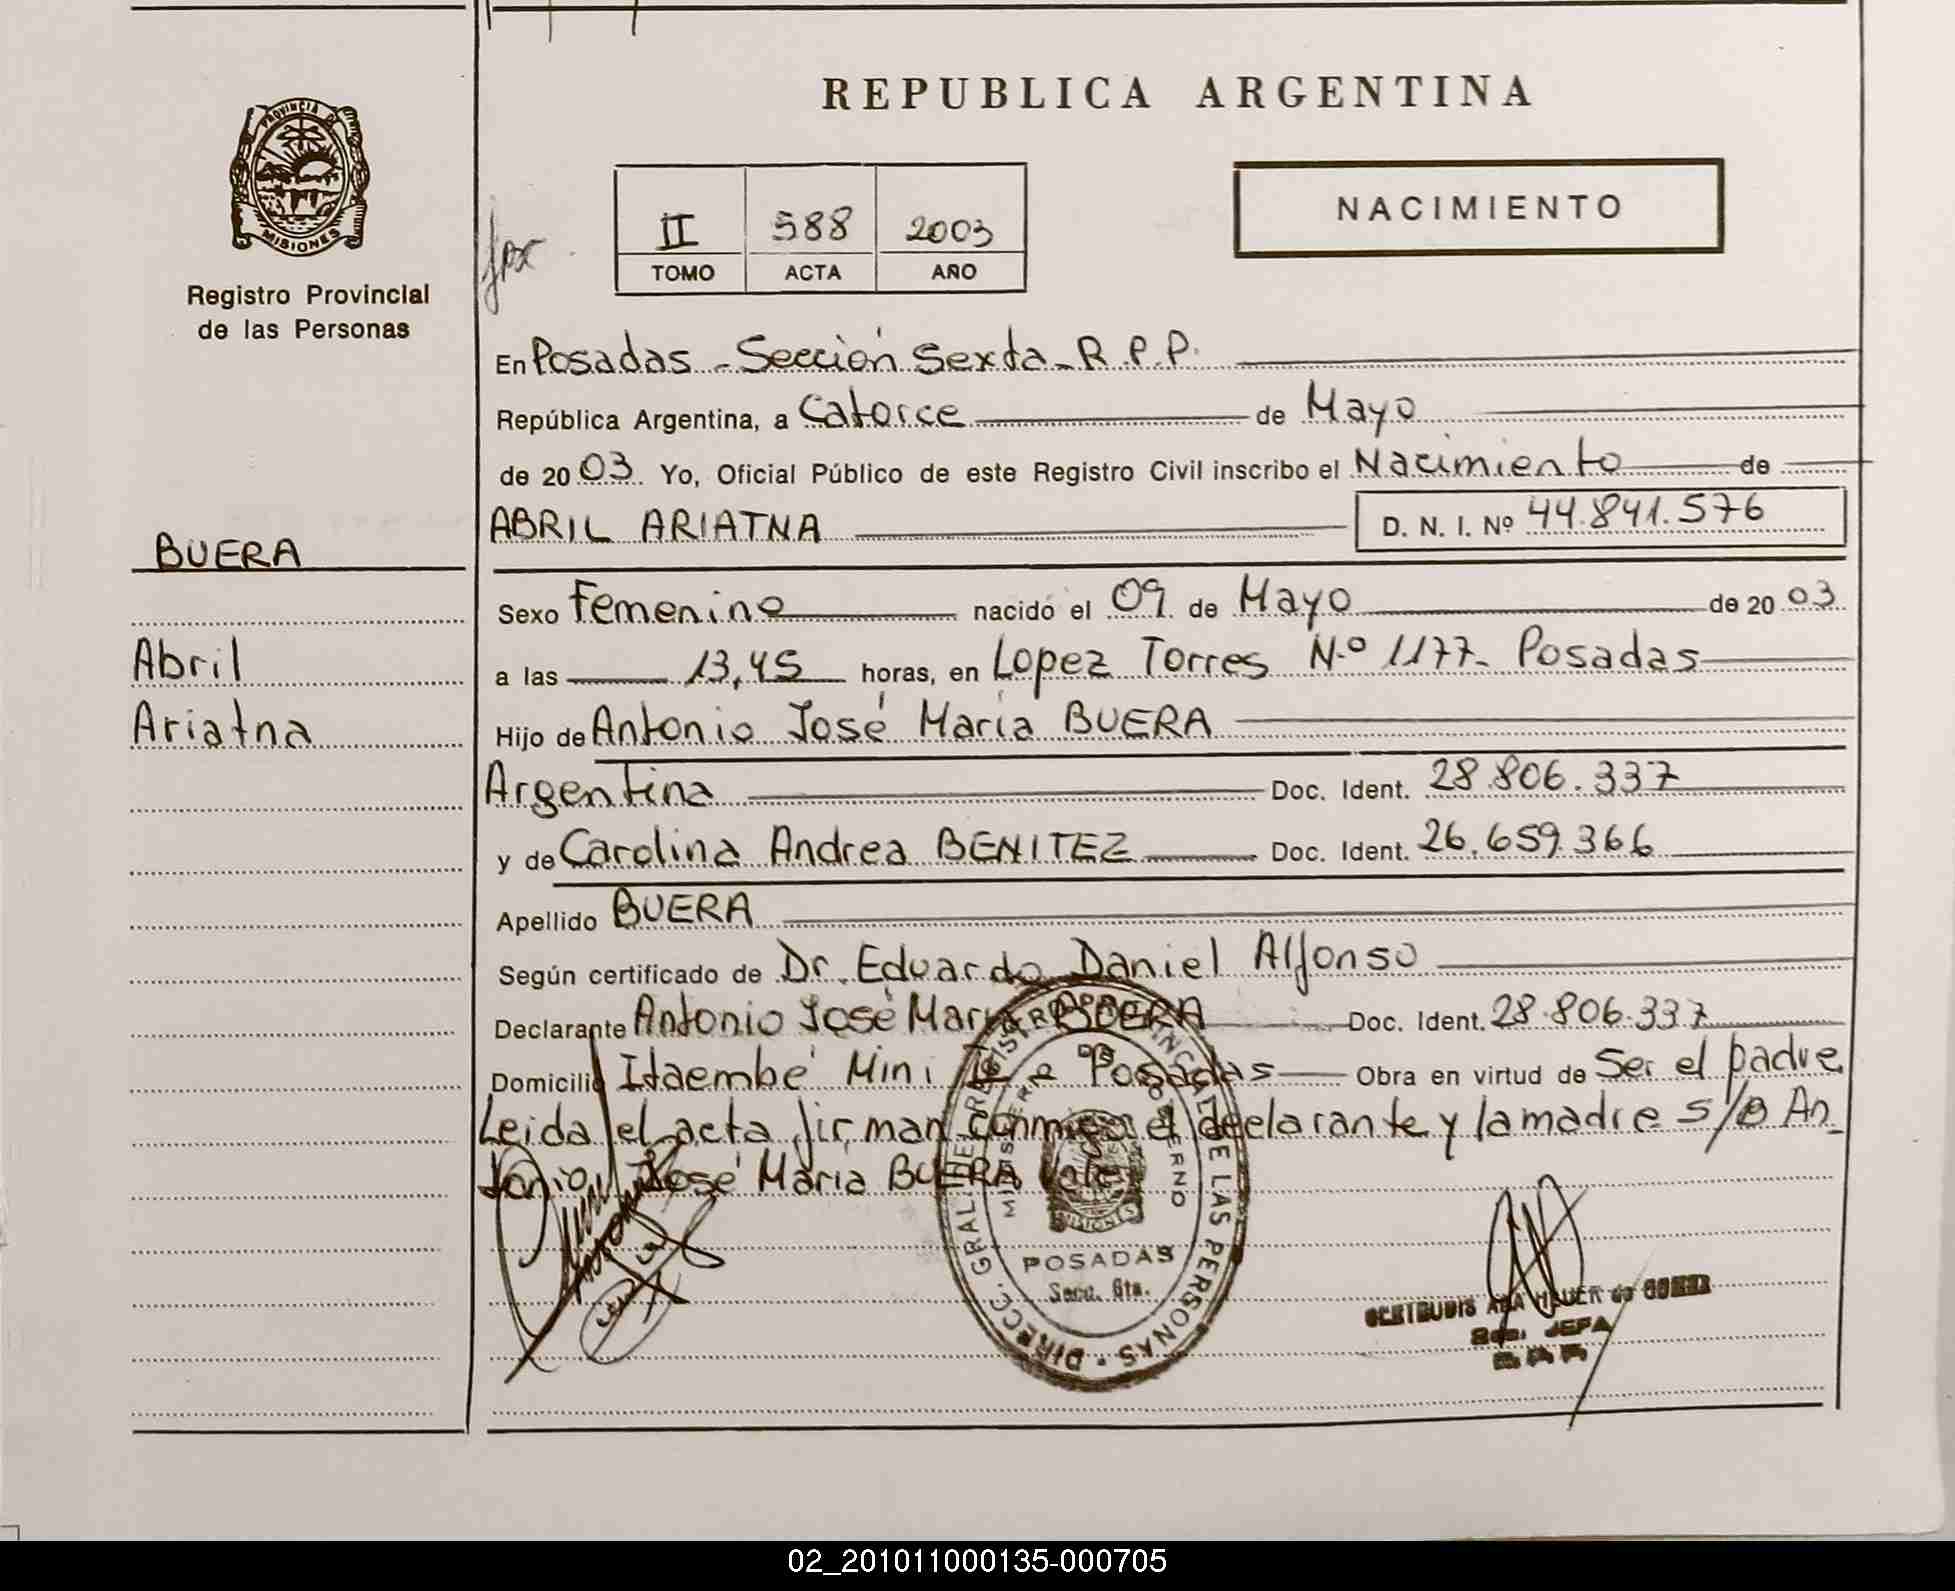 REPUBLICA ARGENTINA
PROVINCIA DE
MISIONES
Registro Provincial
de las Personas
II 588 2003
TOMO ACTA AÑO
NACIMIENTO
En Posadas - Sección Sexta - R.P.P.
República Argentina, a Catorce de Mayo
de 20 03. Yo, Oficial Público de este Registro Civil inscribo el Nacimiento de
ABRIL ARIATNA D. N. I. Nº 44.841.576
BUERA
Abril
Ariatna
Sexo Femenino nacido el 09 de Mayo de 20 03
a las 13,45 horas, en Lopez Torres N.º 1177 - Posadas
Hijo de Antonio José María BUERA
Argentina Doc. Ident. 28.806.337
y de Carolina Andrea BENITEZ Doc. Ident. 26.659.366
Apellido BUERA
Según certificado de Dr. Eduardo Daniel Alfonso
Declarante Antonio José María BUERA Doc. Ident. 28.806.337
Domicilio Itaembé Mini Posadas Obra en virtud de Ser el padre
Leida el acta firman conmigo el declarante y la madre S/B An
tonio José María BUERA Vale
DIRECC. GRAL. DE REGISTRO PROVINCIAL DE LAS PERSONAS
MINISTERIO DE GOBIERNO
MISIONES
POSADAS
Secc. 6ta.
JEFA
02_201011000135-000705